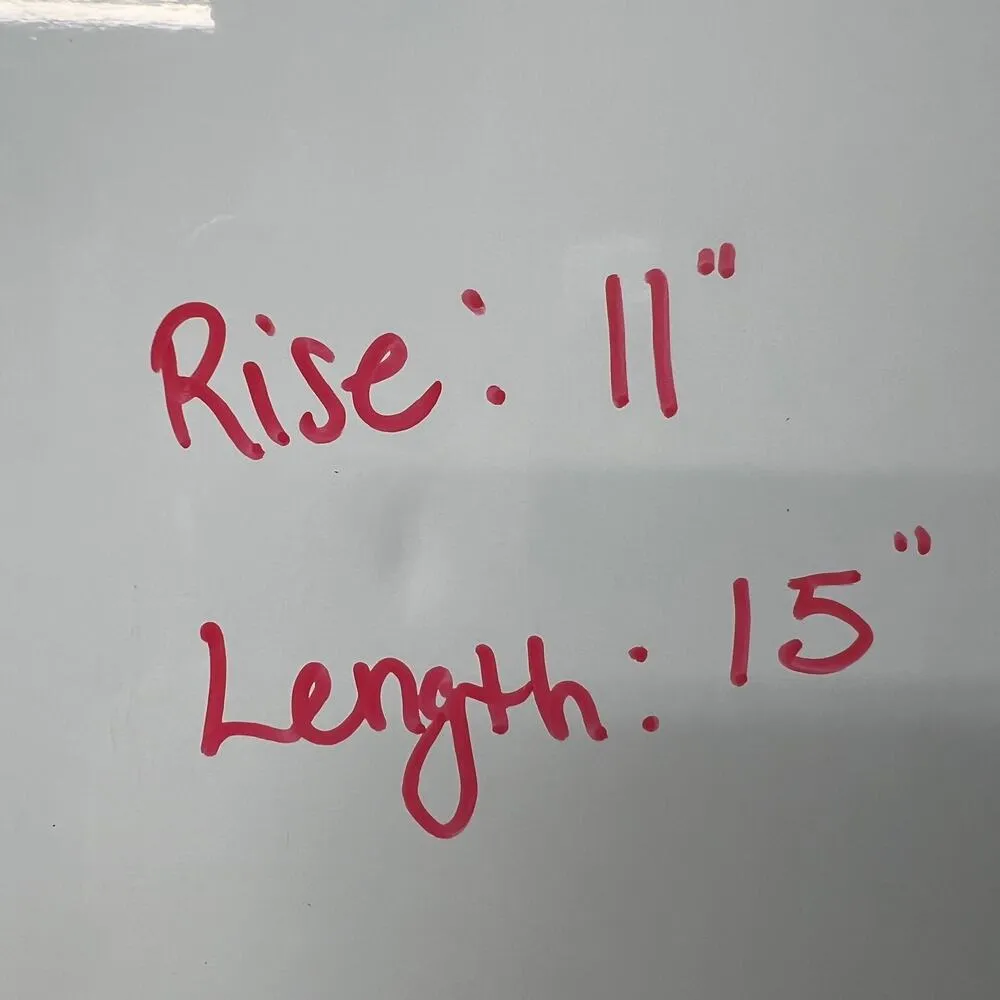 Rise: 11"
Length: 15"